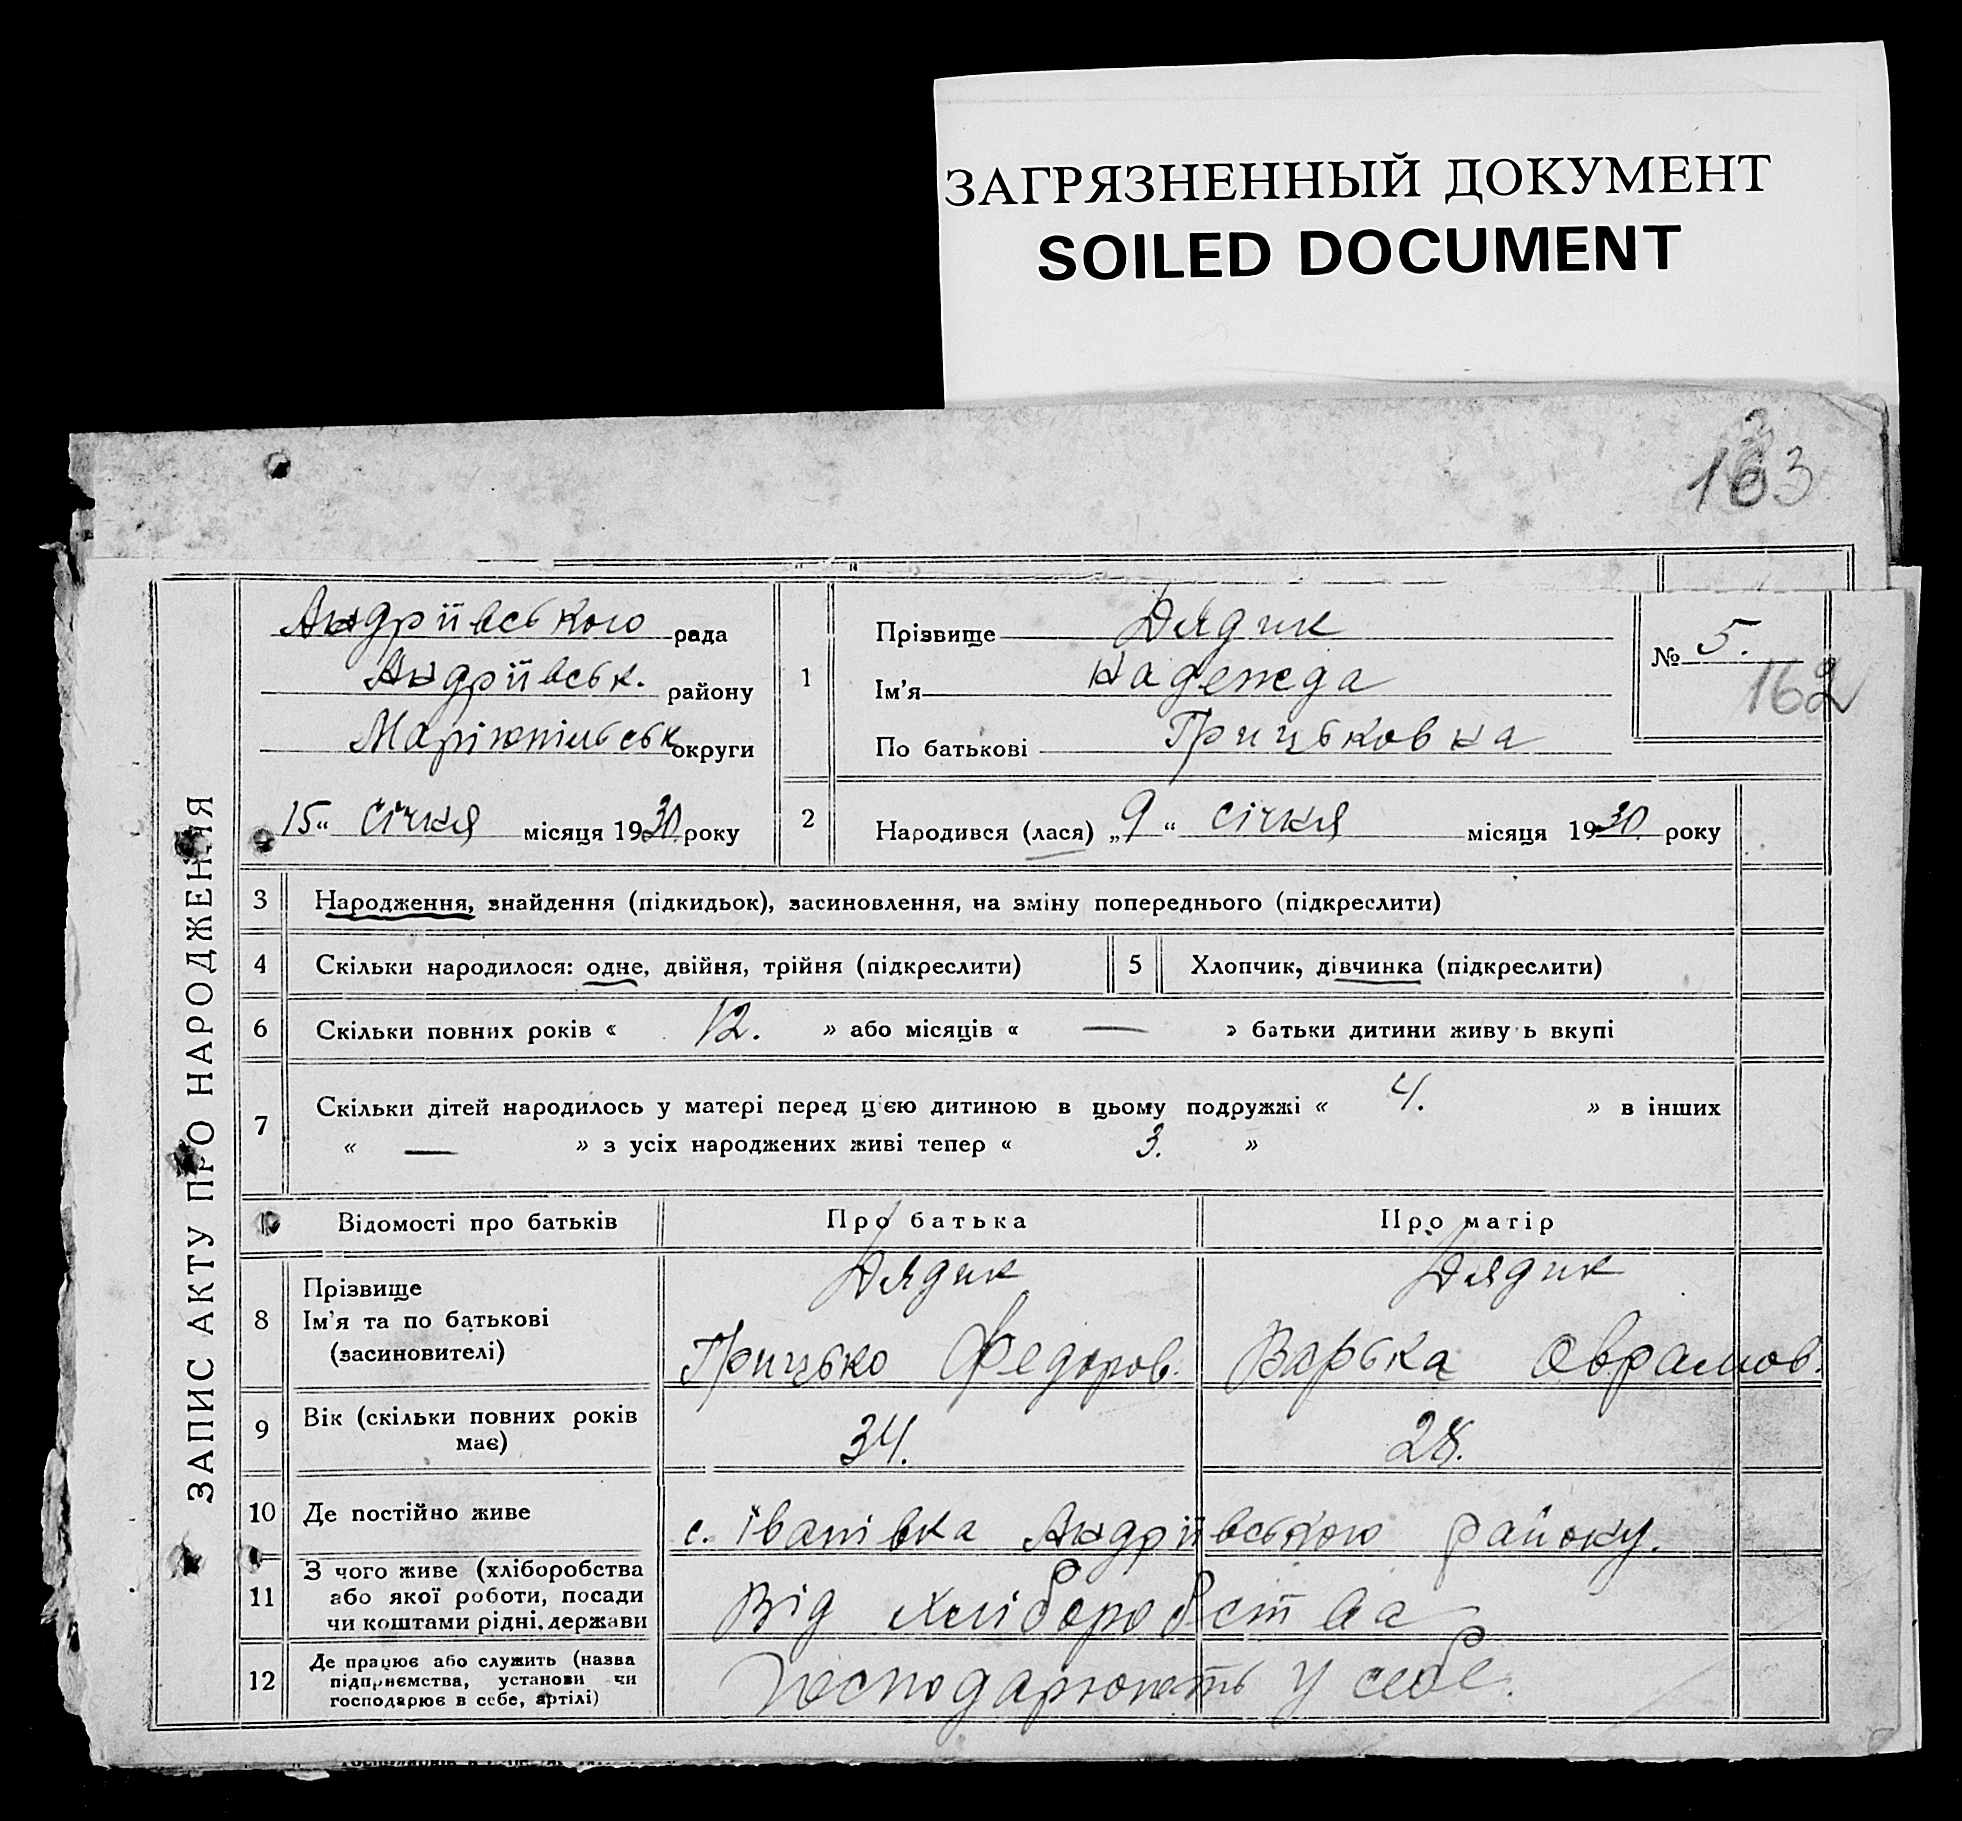 ЗАГРЯЗНЕННЫЙ ДОКУМЕНТ
SOILED DOCUMENT
163
ЗАПИС АКТУ ПРО НАРОДЖЕННЯ
Андріївського рада
Андріївськ. району
Маріюпільськ округи
15 „ Січня місяця 1930 року
1
Прізвище Дядик
Ім'я Надежда
По батькові Грицьковна
№ 5.
162
2
Народився (лася) „ 9 “ Січня місяця 1930 року
3 Народження, знайдення (підкидьок), засиновлення, на зміну попереднього (підкреслити)
4 Скільки народилося: одне, двійня, трійня (підкреслити) 5 Хлопчик, дівчинка (підкреслити)
6 Скільки повних років « 12. » або місяців « — » батьки дитини живу ь вкупі
7 Скільки дітей народилось у матері перед цією дитиною в цьому подружжі « 4. » в інших
« — » з усіх народжених живі тепер « 3. »
Відомості про батьків Про батька Про матір
8 Прізвище Дядик Дядик
Ім'я та по батькові
(засиновителі) Грицько Федоров. Варька Оврамов.
9 Вік (скільки повних років
має) 34. 28.
10 Де постійно живе с. Іванівка Андріївського району.
11 З чого живе (хліборобства
або якої роботи, посади
чи коштами рідні, держави Від хліборобства
12 Де працює або служить (назва
підприємства, установи чи
господарює в себе, артілі) Господарюють у себе.